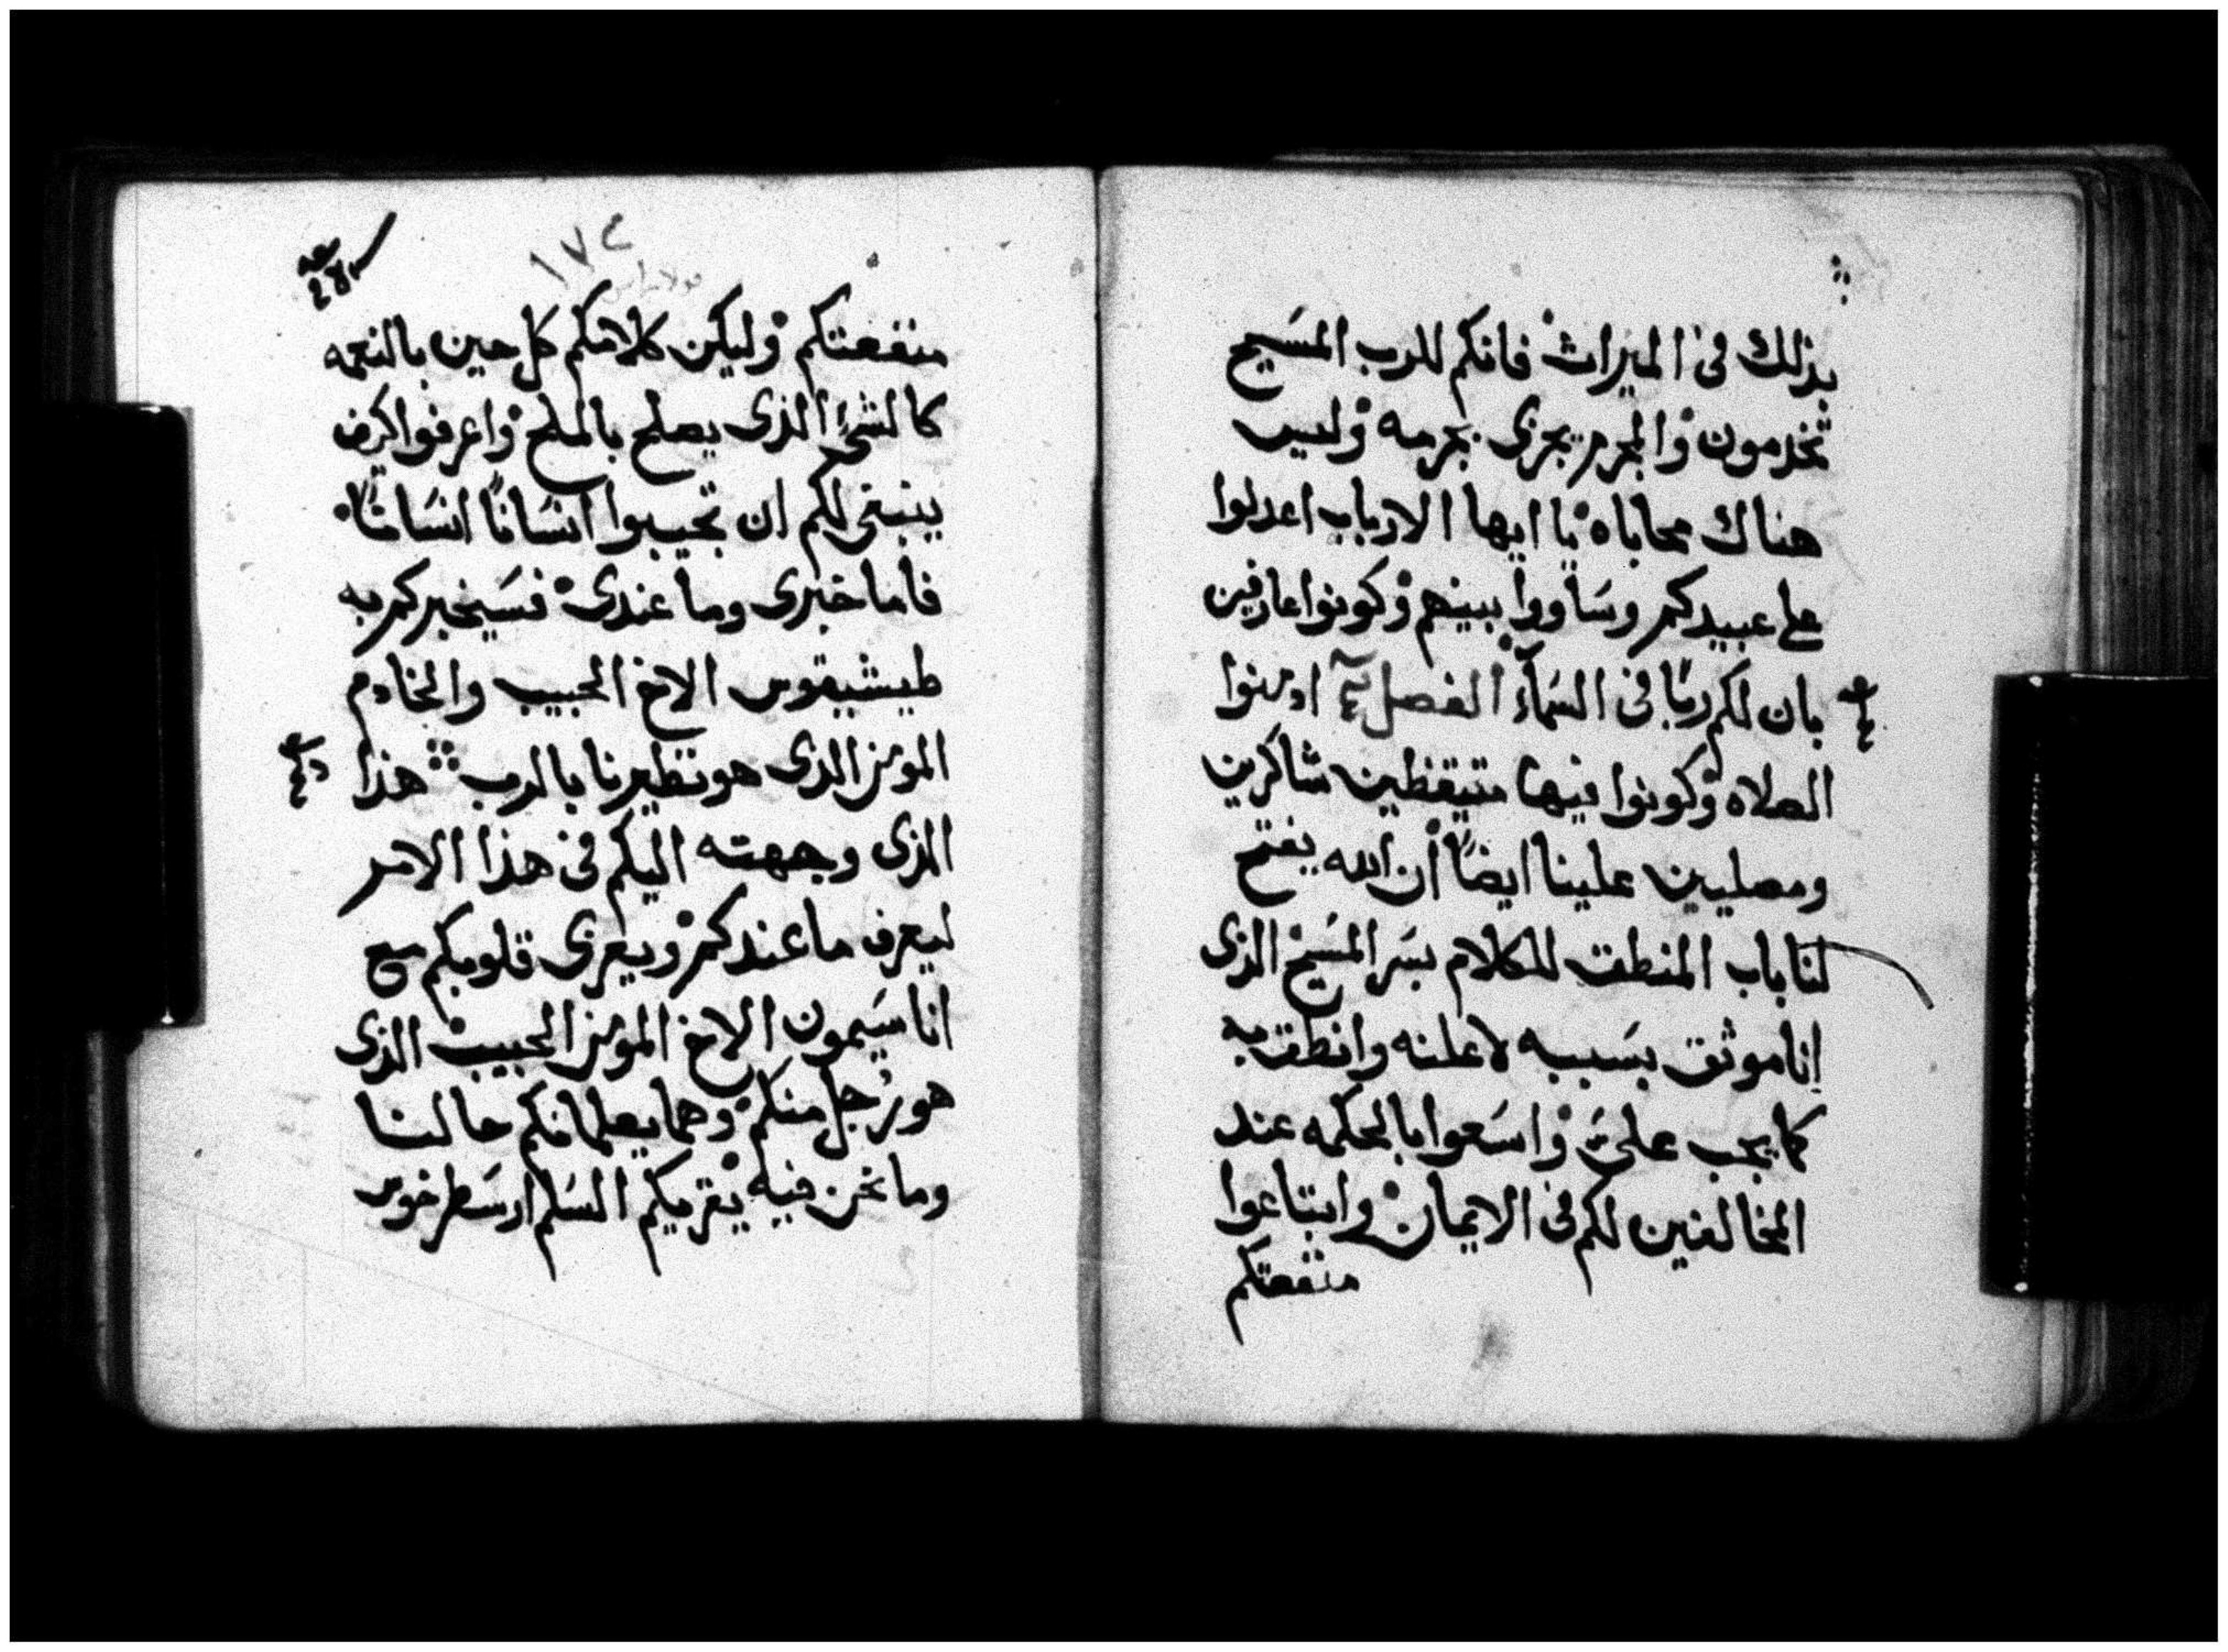 بذلك فى الميراث فانكم للرب المسَيح
تخدمون والمجرم يجزى بجرمه وليس
هناك محاباه يا ايها الارباب اعدلوا
على عبيدكم وسَاووا بينهم وكونوا عارفين
بان لكم ربًا فى السَمآء الفصل ادمنوا
الصلاه وكونوا فيها متيقظين شاكرين
ومصليين علينا ايضًا ان الله يفتح
لنا باب المنطق للكلام بسَر المسَيح الذى
انا موثق بسَببه لاعلنه وانطق به
كما يجب علىَّ واسَعوا بالحكمه عند
المخالفين لكم فى الايمان وابتاعوا
منفعتكم
١٧٤
منفعتكم وليكن كلامكم كل حين بالنعمه
كالشى الذى يصلح بالملح واعرفوا كيف
ينبغى لكم ان تجيبوا انسَانًا انسَانًا
فاما خبرى وما عندى فسَيخبركم به
طيشيقوس الاخ الحبيب والخادم
المومن الذى هو نظيرنا بالرب هذا
الذى وجهته اليكم فى هذا الامر
ليعرف ما عندكم ويعزى قلوبكم مع
اناسَيمون الاخ المومن الحبيب الذى
هو رجل منكم وهما يعلمانكم حالنا
وما نحن فيه يقريكم السَلم ارسَطرخوس